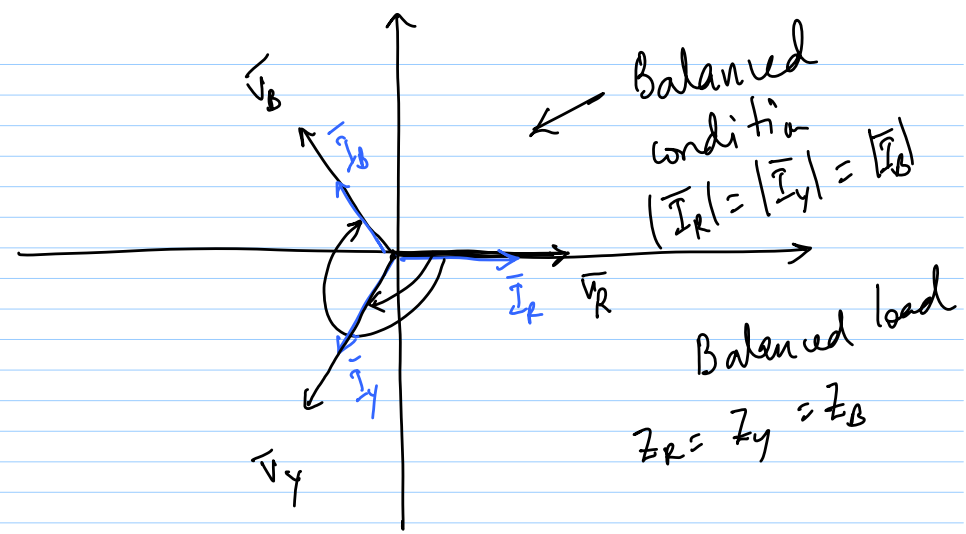 V̅_B
I̅_B
Balanced
condition
|I̅_R| = |I̅_Y| = |I̅_B|
I̅_R
V̅_R
I̅_Y
V̅_Y
Balanced load
Z_R = Z_Y = Z_B